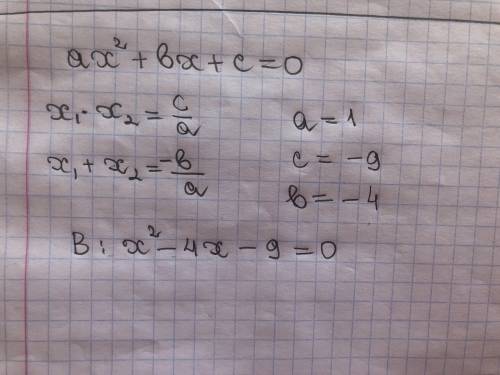 ax² + bx + c = 0
x₁ · x₂ = c/a
a = 1
x₁ + x₂ = -b/a
c = -9
b = -4
B: x² - 4x - 9 = 0